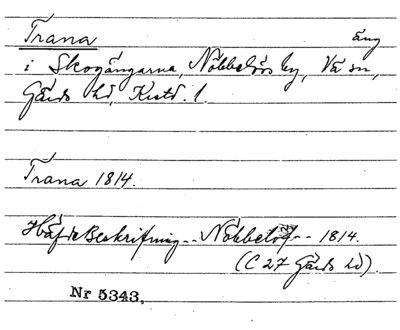 Trana äng
i Skogängarna, Nöbbelövs by, Vä sn,
Gärds hd, Krstd. l.
Trana 1814.
Häfde Beskrifning -- Nöbbelöf -- 1814.
(C 27 Gärds hd).
Nr 5343.